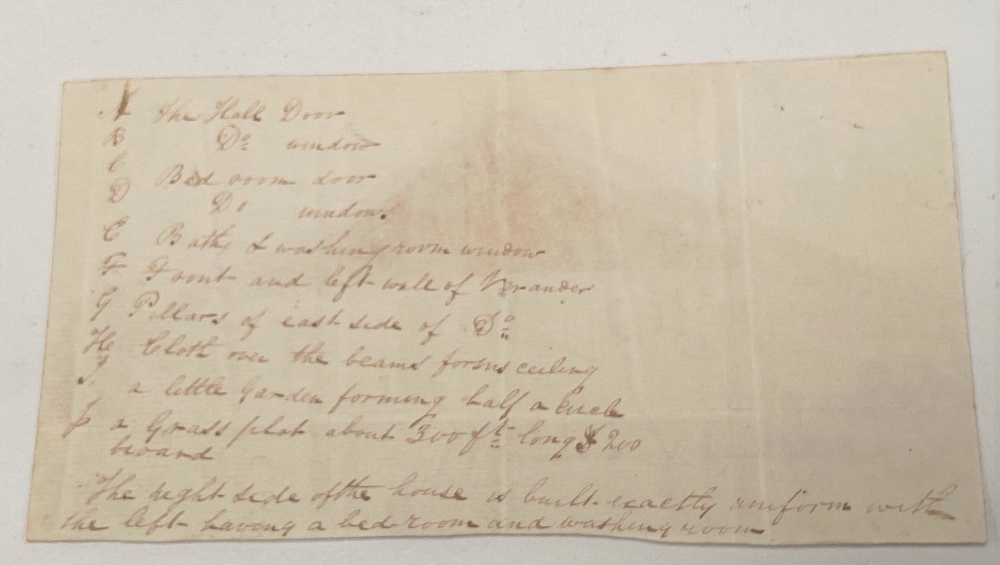 A the Hall Door
B Do window
C Bed room door
D Do windows
E Bath, & washing room window
F Front and left wall of Verander
G Pillars of east side of Do
H Cloth over the beams forms ceiling
I a little Garden forming half a Circle
J a Grass plot about 300 ft long & 200
broard
The right side of the house is built exactly uniform with
the left having a bed room and washing room